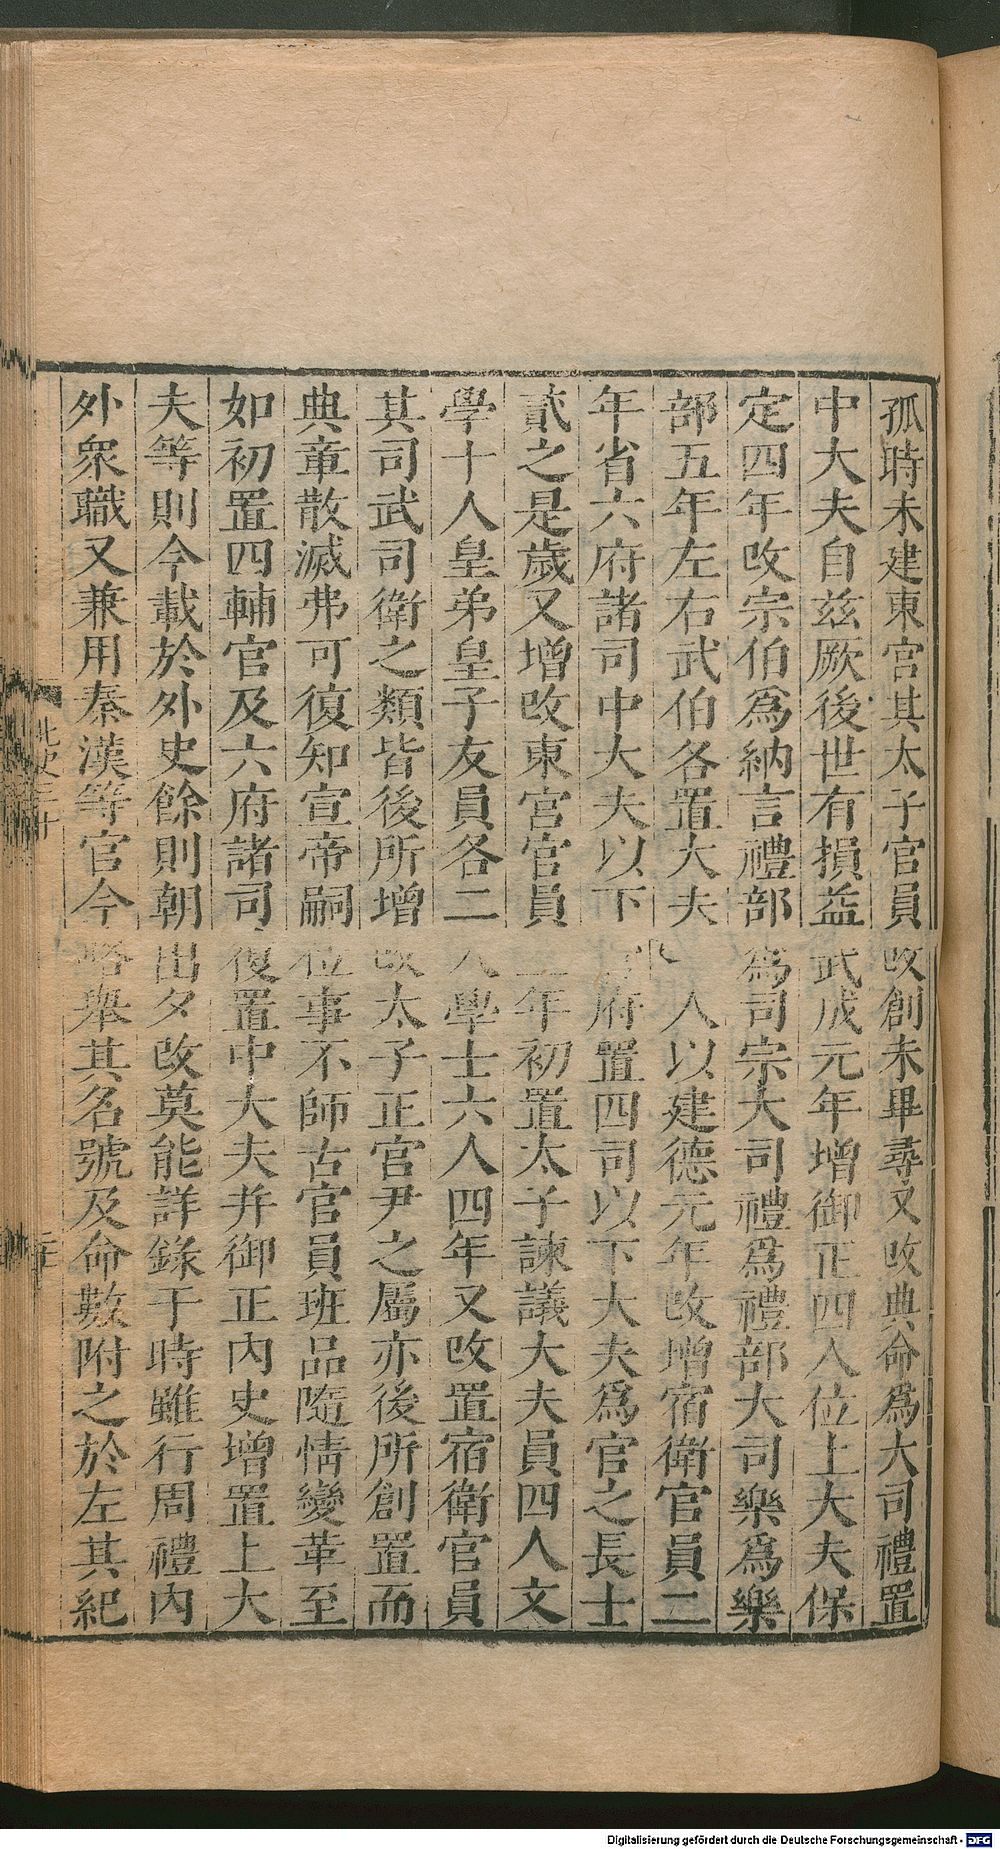 孤時未建東宮其太子官員改創未畢尋又改典命爲大司禮置
中大夫自茲厥後世有損益武成元年增御正四人位上大夫保
定四年改宗伯爲納言禮部爲司宗大司禮爲禮部大司樂爲樂
部五年左右武伯各置大夫人以建德元年改增宿衛官員二
年省六府諸司中大夫以下府置四司以下大夫爲官之長士
貳之是歲又增改東宮官員年初置太子諫議大夫員四人文
學十人皇弟皇子友員各二人學士六人四年又改置宿衛官員
其司武司衛之類皆後所增改太子正宮尹之屬亦後所創置而
典章散滅弗可復知宣帝嗣位事不師古官員班品隨情變革至
如初置四輔官及六府諸司復置中大夫并御正內史增置上大
夫等則今載於外史餘則朝出夕改莫能詳錄于時雖行周禮內
外衆職又兼用秦漢等官今略舉其名號及命數附之於左其紀
北史三十
Digitalisierung gefördert durch die Deutsche Forschungsgemeinschaft - DFG